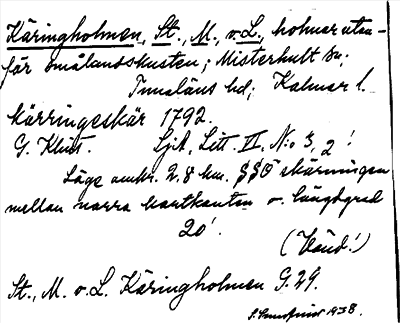 Käringholmen, St., M., o. L., holmar utan-
för smålandskusten; Misterhult sn;
Tunaläns hd; Kalmar l.
kärringeskär 1792.
G. Klint. SjA, Litt. II, No 3, 2!
Läge omkr. 2.8 km. SSO skärningen
mellan norra kartkanten o. längdgrad
20'.
(Vänd!)
St., M. o. L. Käringholmen G. 29.
1938.